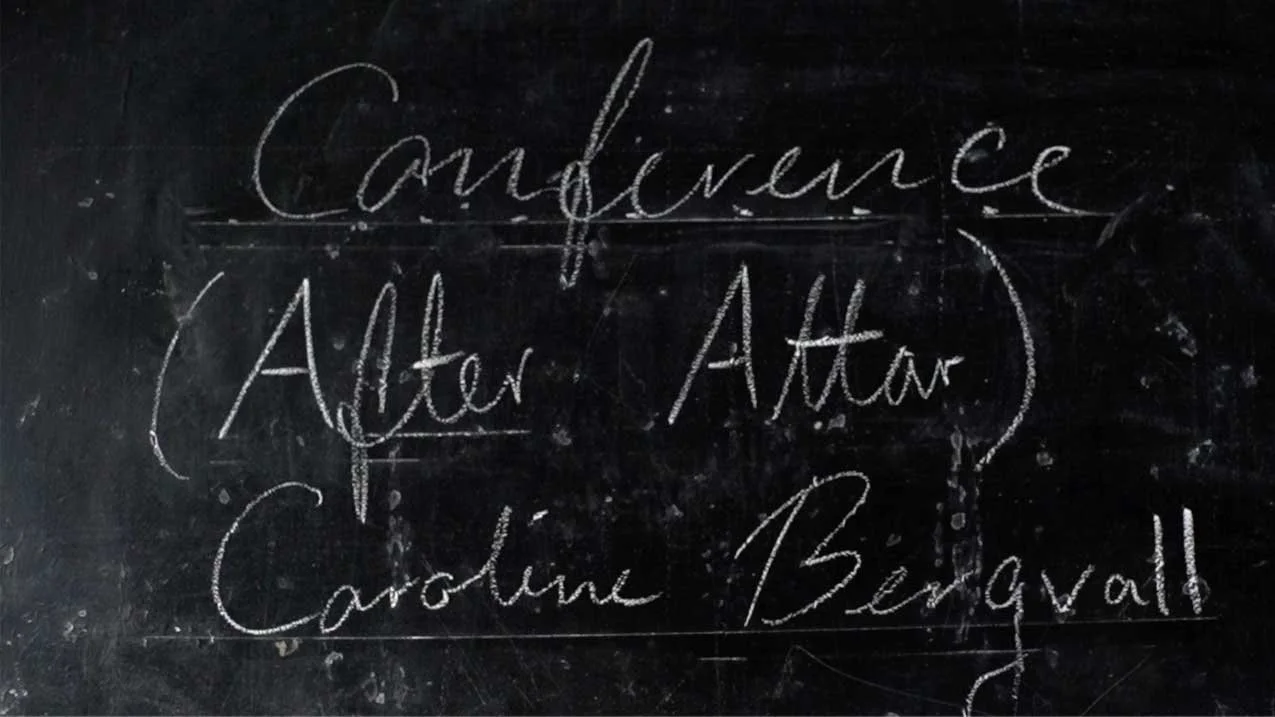 Conference
(After Attar)
Caroline Bergvall